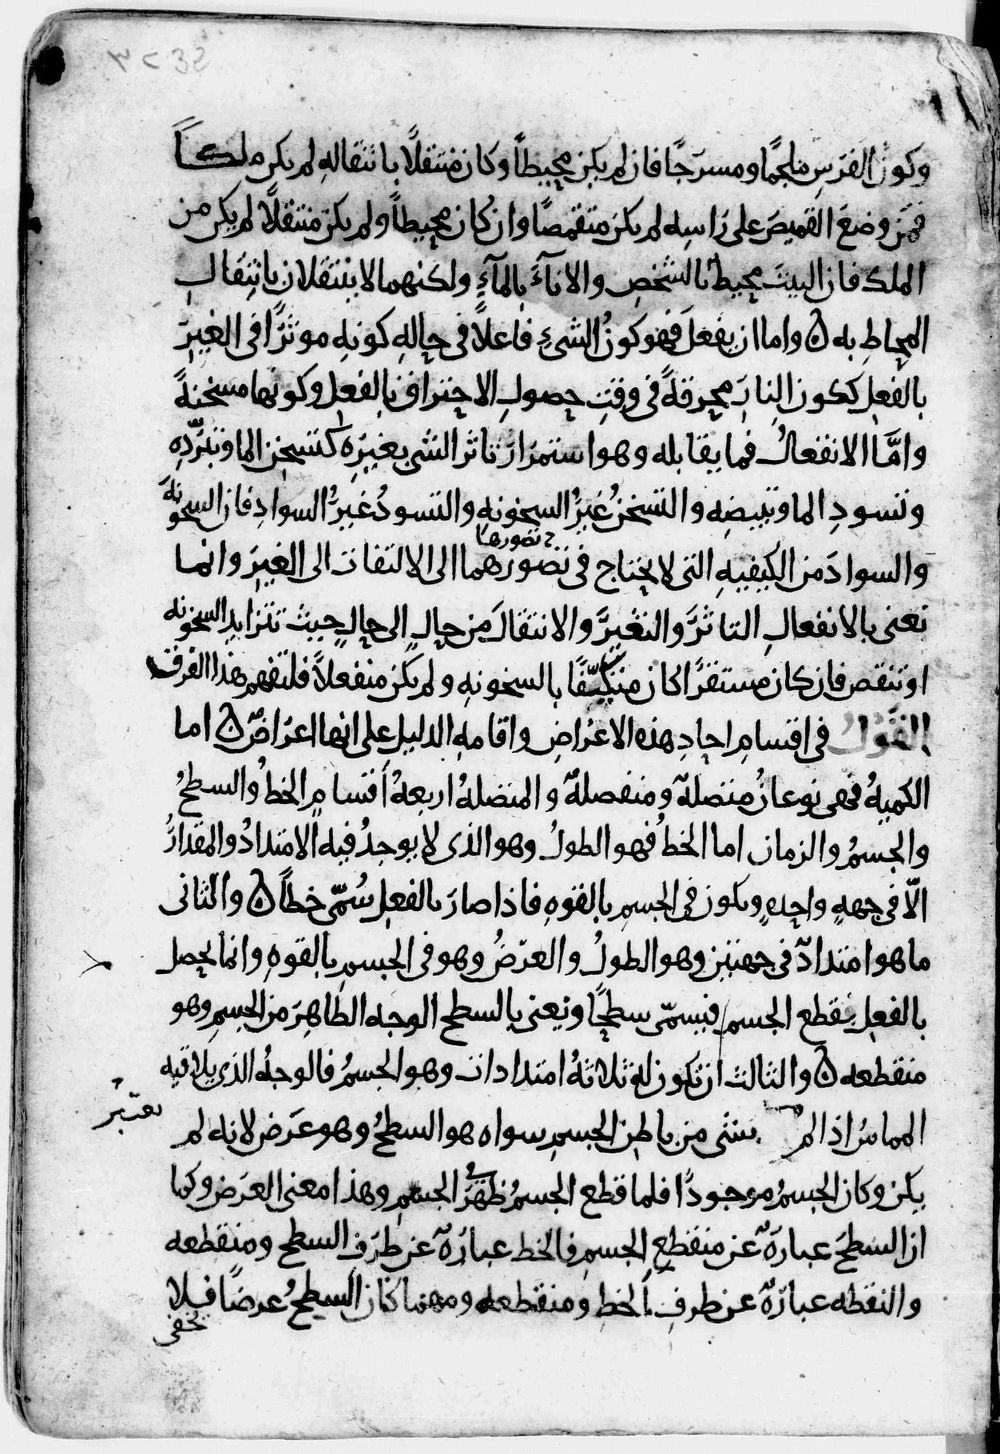 وكون الفرس ملجمًا ومسرجًا فان لم يكن محيطًا وكان منتقلًا بانتقاله لم يكن ملكًا
فمن وضع القميص على راسه لم يكن متقمصًا وان كان محيطًا ولم يكن منتقلًا لم يكن من
الملك فان البيت محيط بالشخص والاناء بالماء ولكنهما لا ينتقلان بانتقال
المحاط به ۞ واما ان يفعل فهو كون الشيء فاعلًا في حاله كونه موثرًا في الغير
بالفعل ككون النار محرقة في وقت حصول الاحتراق بالفعل وكونها مسخنةً
وامَّا الانفعال فما يقابله وهو استمرار تاثر الشي بغيره كتسخن الما وتبرّده
وتسود الما وتبيضه والتسخن غير السخونه والتسود غير السواد فان السخونة
تصورها
والسواد من الكيفيه التى لا يحتاج فى تصورهما الى الالتفات الى الغير وانما
نعنى بالانفعال التاثر والتغير والانتقال من حال الى حال حيث تتزايد السخونه
او تنقص فان كان مستقرًا كان متكيّفًا بالسخونه ولم يكن منفعلًا فلتفهم هذا الفرق
القول فى اقسام احاد هذه الاعراض واقامه الدليل على انها اعراض ۞ اما
الكميه فهى نوعان متصلة ومنفصلة والمتصلة اربعة اقسام الخط والسطح
والجسم والزمان اما الخط فهو الطول وهو الذى لا يوجد فيه الامتداد والمقدار
الّا فى جهه واحده ويكون فى الجسم بالقوه فاذا صار بالفعل سُمّى خطاً ۞ والثانى
ما هو امتداد فى جهتين وهو الطول والعرض وهو فى الجسم بالقوه وانما يحصل
بالفعل بقطع الجسم فيسمّى سطحًا ونعنى بالسطح الوجه الظاهر من الجسم وهو
منقطعه ۞ والثالث ان تكون له ثلاثة امتدادات وهو الجسم فالوجه الذى يلاقيه
يعتبر
المماس اذا لم شى من باطن الجسم سواه هو السطح وهو عرض لانه لم
يكن وكان الجسم موجودًا فلما قطع الجسم ظهر فى الجسم وهذا معنى العرض وكما
ان السطح عبارة عن منقطع الجسم فالخط عبارة عن طرف السطح ومنقطعه
والنقطه عبارة عن طرف الخط ومنقطعه ومهما كان السطح عرضًا فلا
يخفى